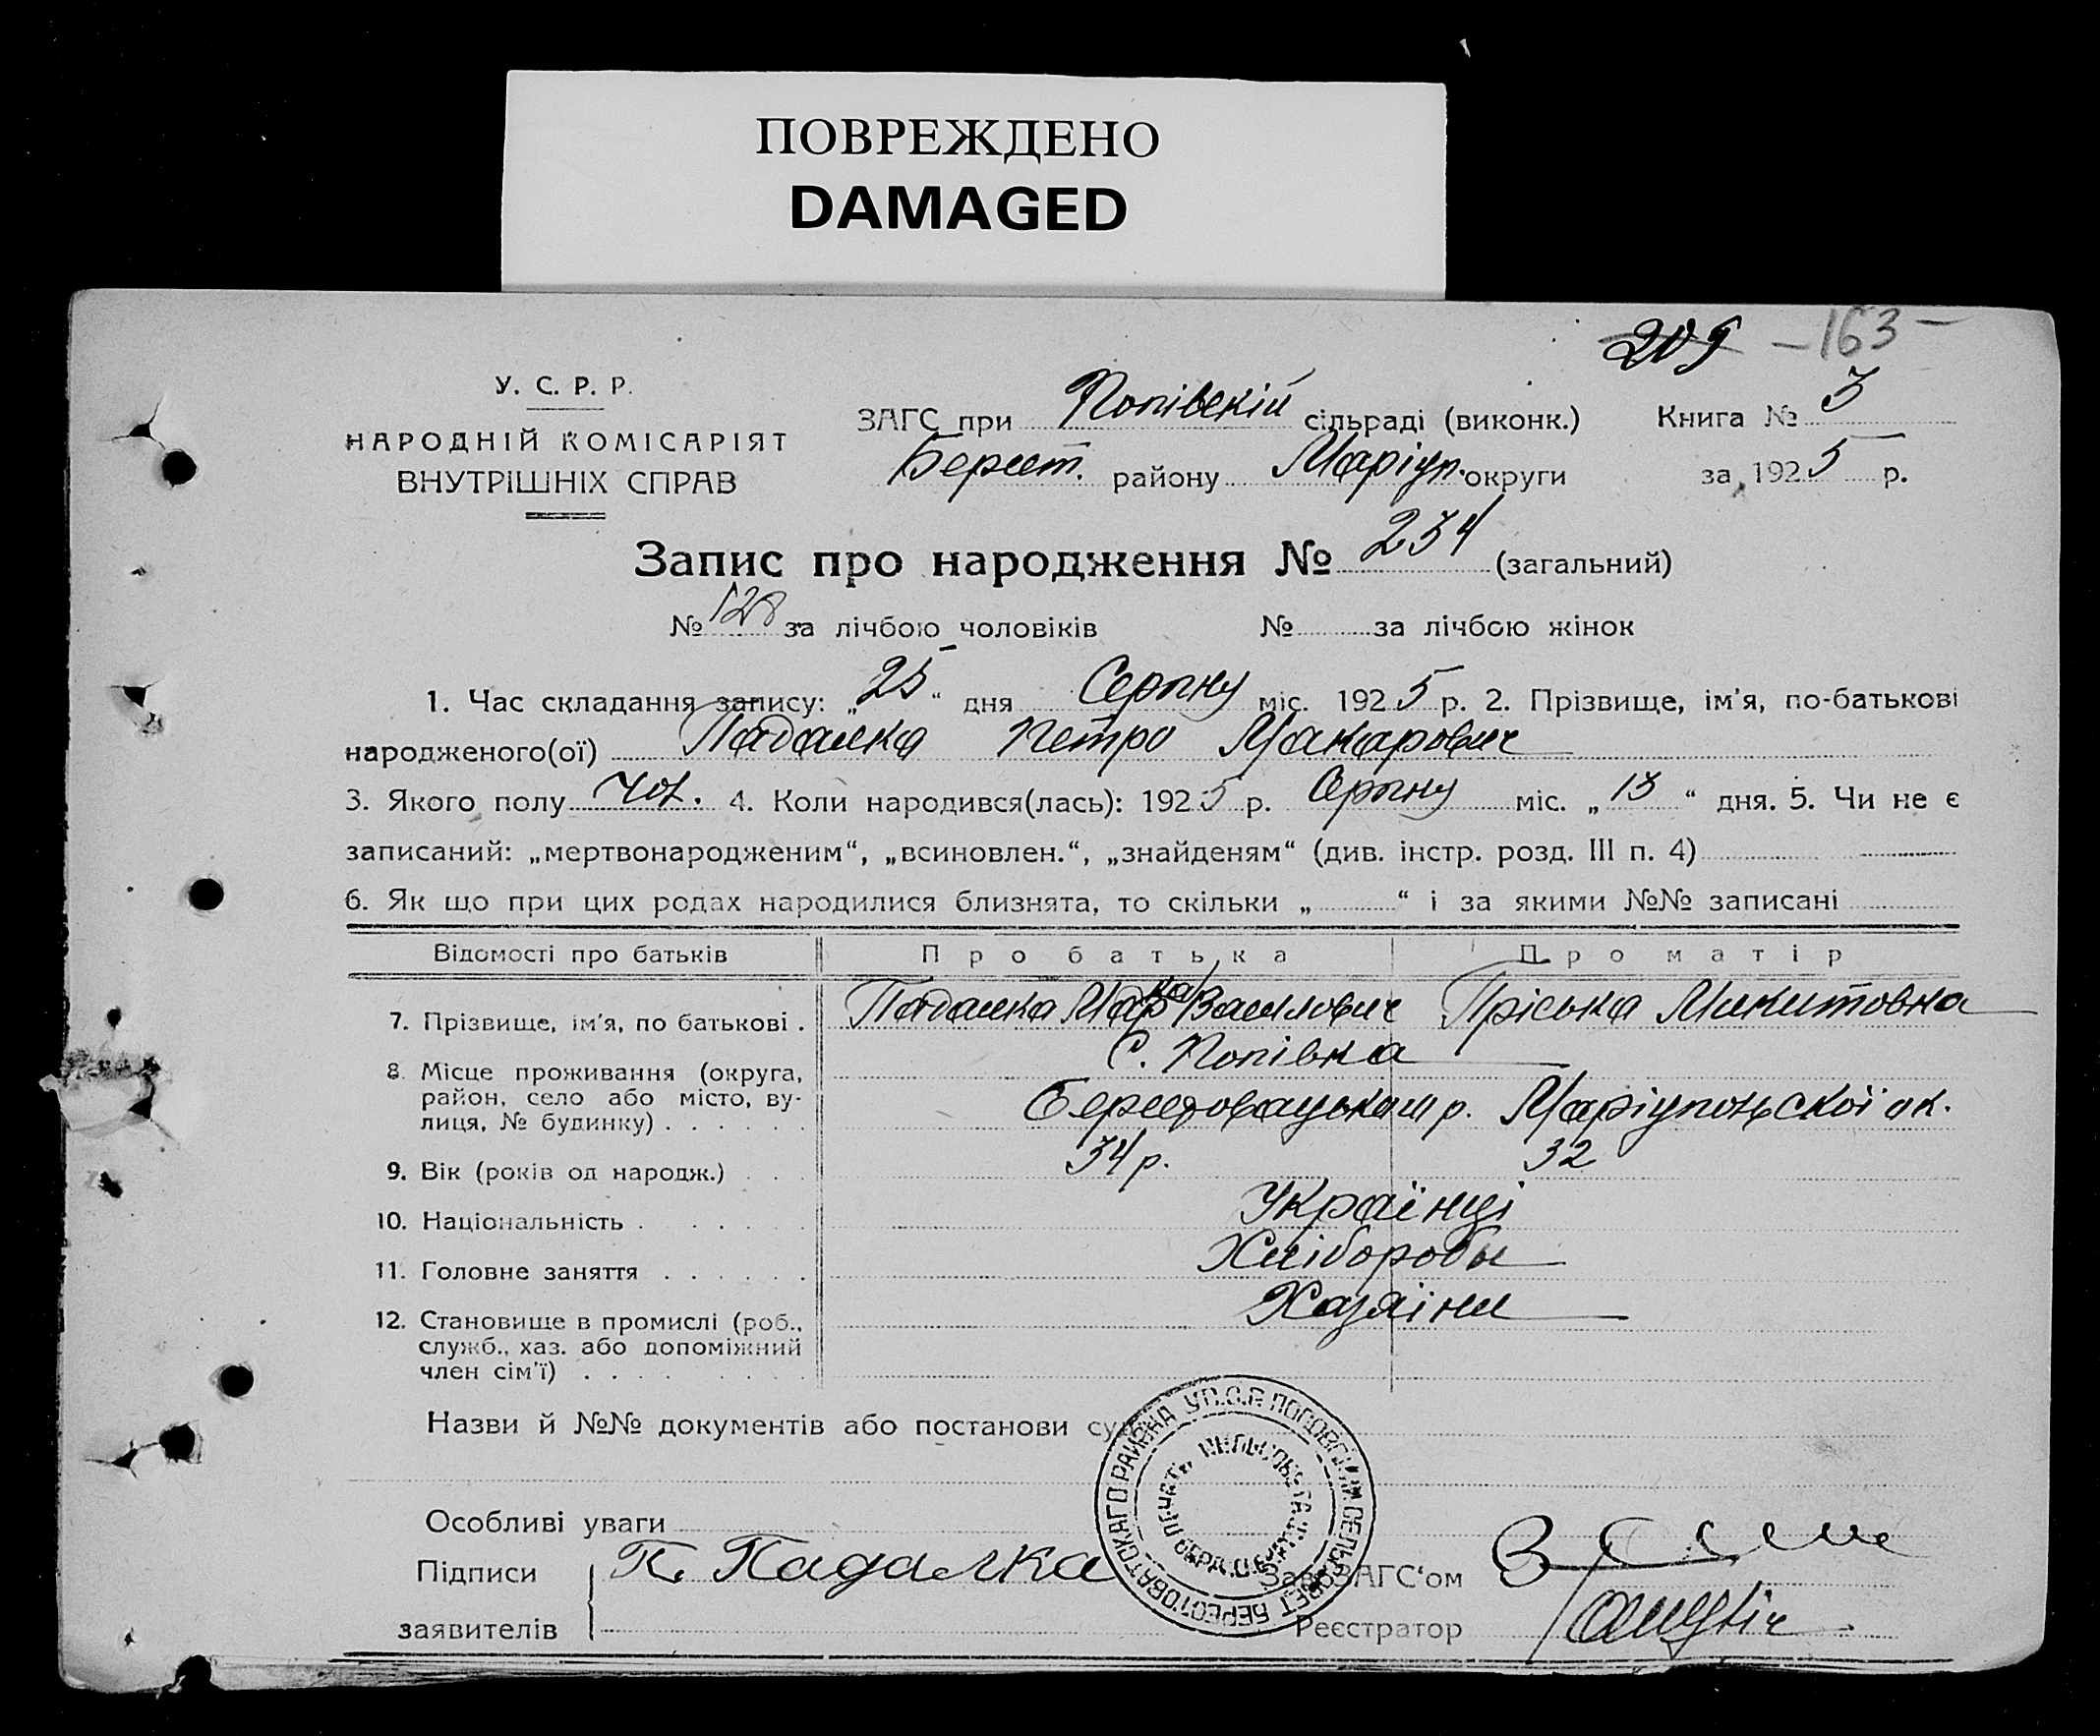 ПОВРЕЖДЕНО
DAMAGED
209 – 163 –
У. С. Р. Р.
НАРОДНІЙ КОМІСАРІЯТ
ВНУТРІШНІХ СПРАВ
ЗАГС при Попівскій сільраді (виконк.) Книга № 3
Берест. району Маріуп. округи за 1925 р.
Запис про народження № 234 (загальний)
№ 128 за лічбою чоловіків № за лічбою жінок
1. Час складання запису: „25“ дня Серпну міс. 1925 р. 2. Прізвище, ім'я, по-батькові
народженого(ої) Падалка Петро Макарович
3. Якого полу чол. 4. Коли народився(лась): 1925 р. Серпну міс. „13“ дня. 5. Чи не є
записаний: „мертвонародженим“, „всиновлен.“, „знайденям“ (див. інстр. розд. III п. 4)
6. Як що при цих родах народилися близнята, то скільки „ “ і за якими №№ записані
Відомості про батьків Про батька Про матір
7. Прізвище, ім'я, по батькові . Падалка Макар Василович Пріська Микитовна
С. Попівка
8. Місце проживання (округа,
район, село або місто, ву-
лиця, № будинку) . . . . . . р. Маріупольскої ок.
9. Вік (років од народж.) . . . 34 р. 32
10. Національність . . . . . Українці
11. Головне заняття . . . . . . Хлібороби
12. Становище в промислі (роб., Хазяіни
служб., хаз. або допоміжний
член сім'ї) . . . . . . . .
Назви й №№ документів або постанови
Особливі уваги
Підписи П. Падалка Зав. ЗАГС'ом
заявителів Реєстратор